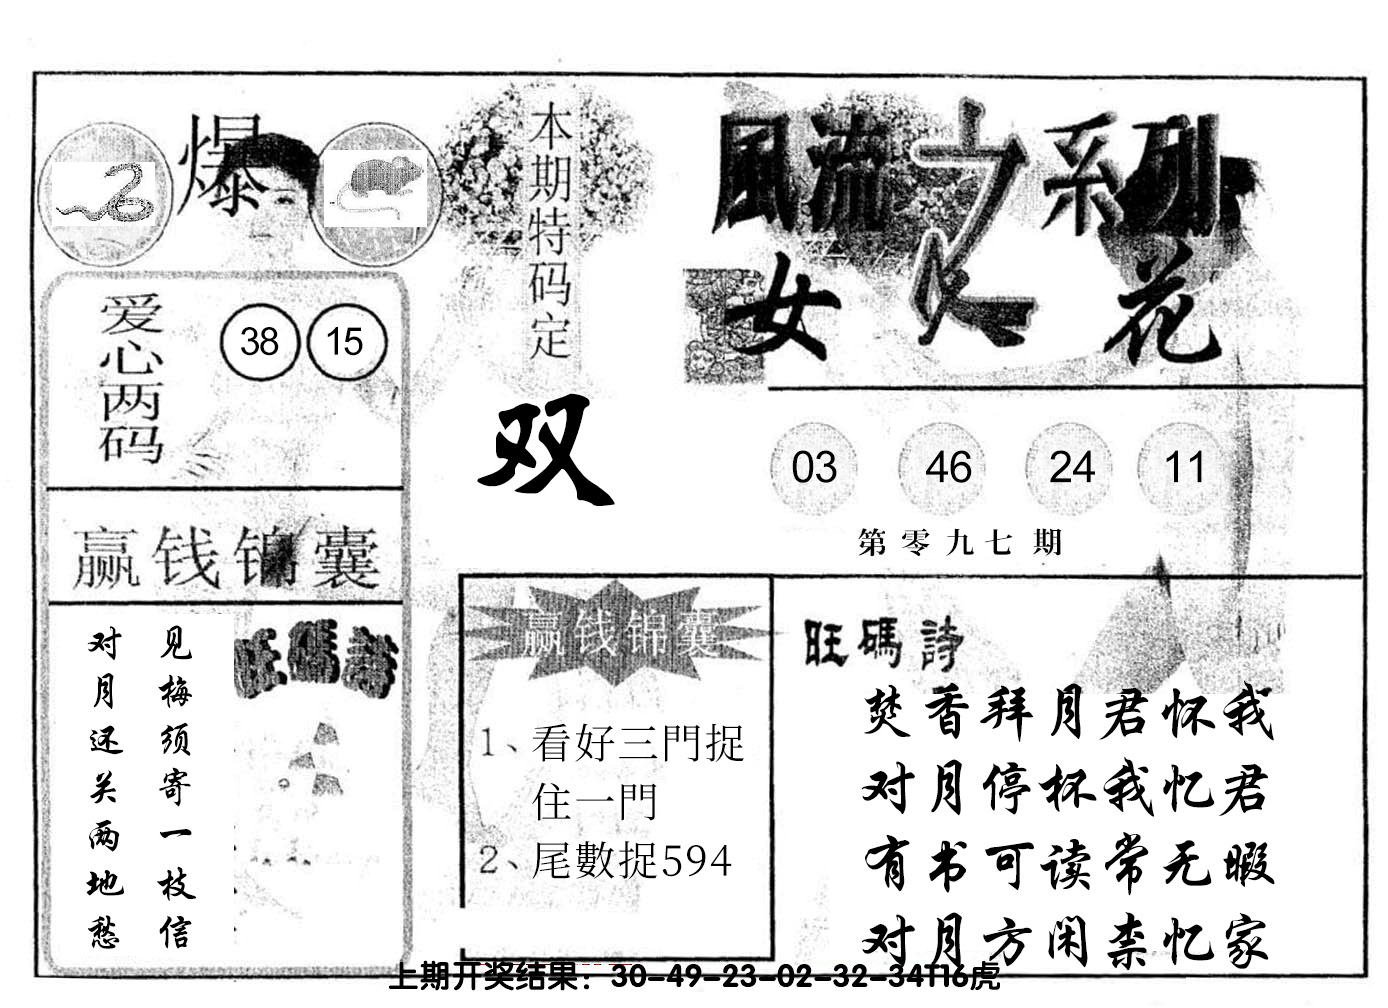 爆
本期特码定
双
風流之系列
女人花
爱心两码
38 15
03 46 24 11
第零九七期
赢钱锦囊
见梅须寄一枝信
对月还关两地愁
旺碼詩
赢钱锦囊
1、看好三門捉
住一門
2、尾數捉594
旺碼詩
焚香拜月君怀我
对月停杯我忆君
有书可读常无暇
对月方闲柰忆家
上期开奖结果：30-49-23-02-32-34T16虎